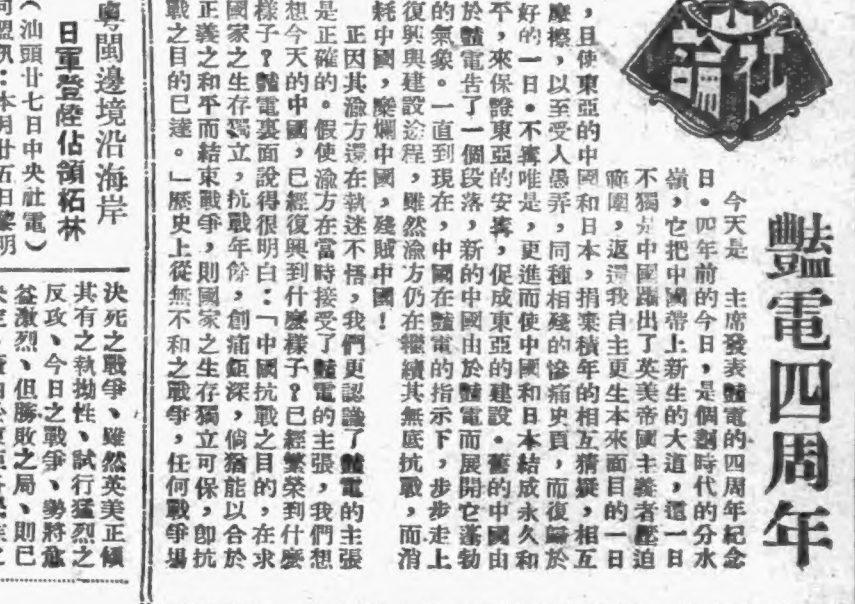 社論
豔電四周年
今天是　主席發表豔電的四周年紀念
日。四年前的今日，是個劃時代的分水
嶺，它把中國帶上新生的大道，這一日
不獨是中國踢出了英美帝國主義者壓迫
範圍，返還我自主更生本來面目的一日
，且使東亞的中國和日本，捐棄積年的相互猜疑，相互
磨擦，以至受人愚弄，同種相殘的慘痛史頁，而復歸於
好的一日。不寗唯是，更進而使中國和日本結成永久和
平，來保證東亞的安寗，促成東亞的建設。舊的中國由
於豔電告了一個段落，新的中國由於豔電而展開它蓬勃
的氣象。一直到現在，中國在豔電的指示下，步步走上
復興與建設途程，雖然渝方仍在繼續其無底抗戰，而消
耗中國，糜爛中國，殘賊中國！
正因其渝方還在執迷不悟，我們更認識了豔電的主張
是正確的。假使渝方在當時接受了豔電的主張，我們想
想今天的中國，已經復興到什麼樣子？已經繁榮到什麼
樣子？豔電裏面說得很明白：「中國抗戰之目的，在求
國家之生存獨立，抗戰年餘，創痛鉅深，倘猶能以合於
正義之和平而結束戰爭，則國家之生存獨立可保，即抗
戰之目的已達。」歷史上從無不和之戰爭，任何戰爭場
粵閩邊境沿海岸
日軍登陸佔領柘林
（汕頭廿七日中央社電）
同盟訊：本月廿五日黎明
決死之戰爭、雖然英美正傾
其有之執拗性、試行猛烈之
反攻、今日之戰爭、勢將愈
益激烈、但勝敗之局、則已